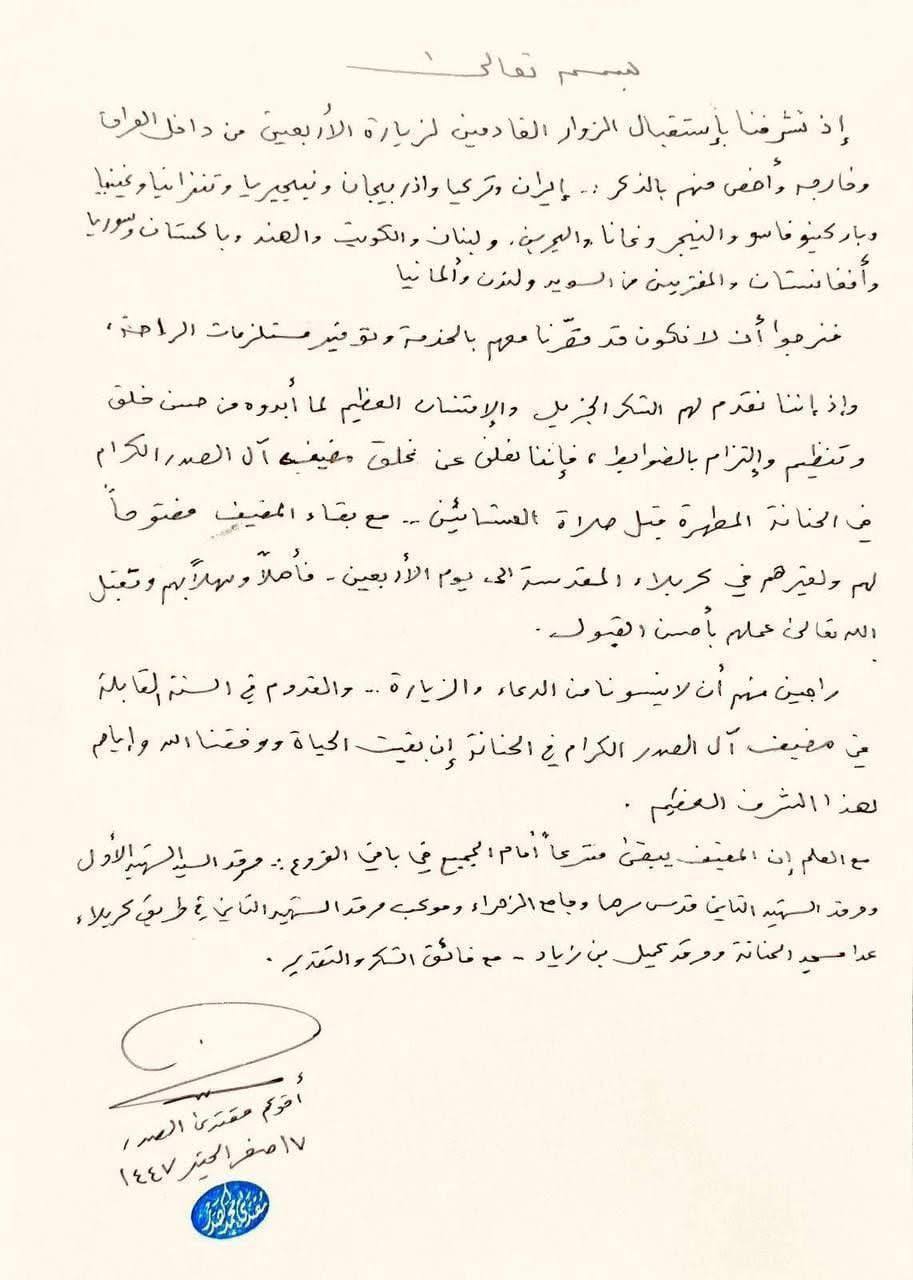 بسمه تعالى
إذ تشرفنا بإستقبال الزوار القادمين لزيارة الأربعين من داخل العراق
وخارجه وأخص منهم بالذكر :. إيران وتركيا واذربيجان ونيجيريا وتنزانيا وغينيا
وباركينو فاسو والنيجر وغانا والبحرين. ولبنان والكويت والهند وباكستان وسوريا
وأفغانستان والمغتربين من السويد ولندن وألمانيا
فنرجوا أن لا نكون قد قصّرنا معهم بالخدمة وتوفير مستلزمات الراحة،
وإذ إننا نقدم لهم الشكر الجزيل والإمتنان العظيم لما أبدوه من حسن خلق
وتنظيم وإلتزام بالضوابط، فإننا نعلن عن غلق مضيف آل الصدر الكرام
في الحنانة المطهرة قبل صلاة العشائين .. مع بقاء المضيف مفتوحاً
لهم ولغيرهم في كربلاء المقدسة الى يوم الأربعين - فأهلاً وسهلاً بهم وتقبل
الله تعالى عملهم بأحسن القبول.
راجين منهم أن لا ينسونا من الدعاء والزيارة .. والقدوم في السنة القابلة
في مضيف آل الصدر الكرام في الحنانة إن بقيت الحياة ووفقنا الله وإياهم
لهذا الشرف العظيم.
مع العلم إن المضيف يبقى مشرعاً أمام الجميع في باقي الفروع :. مرقد السيد الشهيد الأول
ومرقد الشهيد الثاني قدس سرهما وجامع الزهراء وموكب مرقد الشهيد الثاني في طريق كربلاء
عدا مسجد الحنانة ومرقد كميل بن زياد - مع فائق الشكر والتقدير.
أخوكم مقتدى الصدر
١٧ صفر الخير ١٤٤٧
مقتدى محمد الصدر